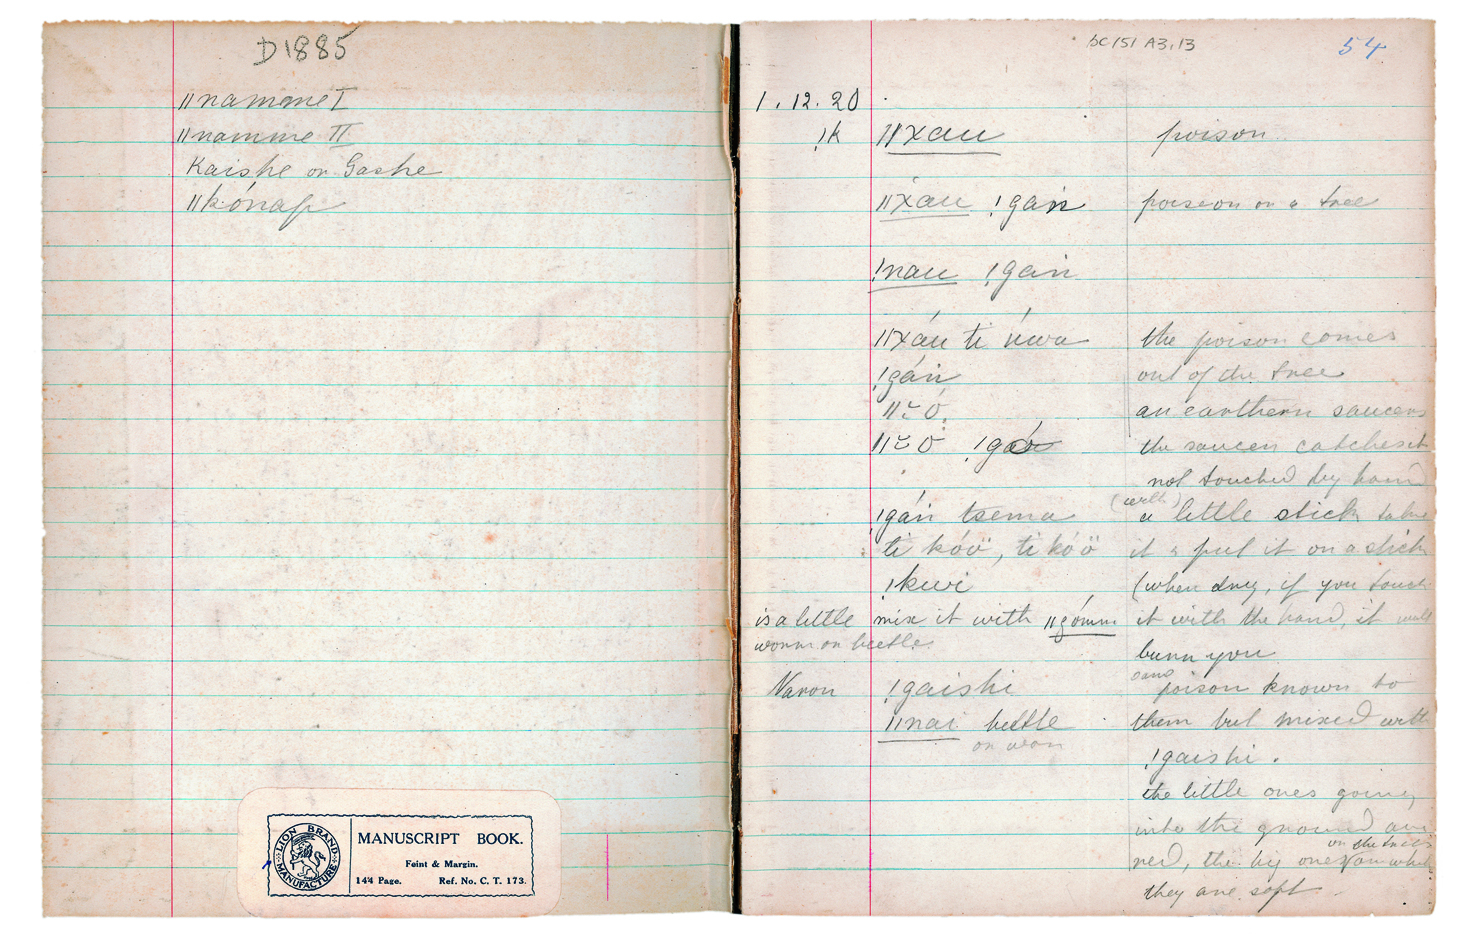 D1885
ǁnamme I
ǁnamme II
Kaishe or Gashe
ǁkónap
LION BRAND
MANUFACTURE
MANUSCRIPT BOOK.
Feint & Margin.
144 Page. Ref. No. C. T. 173.
BC151 A3,13 54
1.12.20
!k ǁxau poison
ǁxau !gaín poison on a tree
!nau !gain
ǁxáu ti úwa the poison comes
!gáin out of the tree
ǁ˜ó an earthern saucers
ǁ˜ó the saucer catches it
not touched by hand
(with)
!gáin tsema a little stick take
ti kóö, ti kóö it & put it on a stick
!kwi (when dry, if you touch
is a little mix it with ǁgómm it with the hand, it will
worm or beetle. burn you
Naron !gaishi poison known to
ǁnai beetle them but mixed with
!gaishi.
the little ones going
into the ground are
on the trees
red, the big ones from which
they are soft